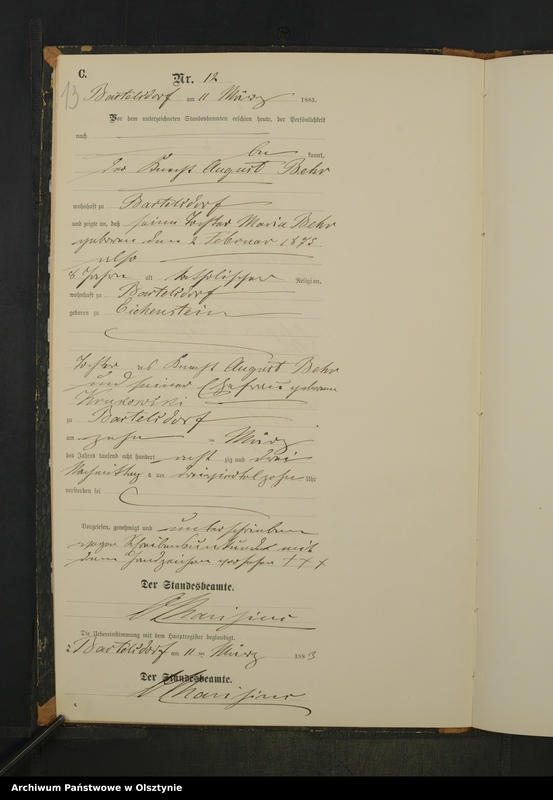 C.
Nr. 12
13
Bartelsdorf am 11 März 1883.
Vor dem unterzeichneten Standesbeamten erschien heute, der Persönlichkeit
nach
be kannt,
der Knecht August Behr
wohnhaft zu Bartelsdorf
und zeigte an, daß seine Tochter Maria Behr
geboren den 2 Februar 1875
also
8 Jahre alt katholischer Religion,
wohnhaft zu Bartelsdorf
geboren zu Eichenstein
Tochter des Knecht August Behr
und seiner Ehefrau geborenen
Krukowski
zu Bartelsdorf
am zehn ten März
des Jahres tausend acht hundert acht zig und drei
Nachmittag s um dreiviertel zehn Uhr
verstorben sei
Vorgelesen, genehmigt und unterschrieben
wegen Schreibensunkunde mit
dem Handzeichen versehen + + +
Der Standesbeamte.
Die Uebereinstimmung mit dem Hauptregister beglaubigt.
Bartelsdorf am 11 ten März 1883
Der Standesbeamte.
Archiwum Państwowe w Olsztynie